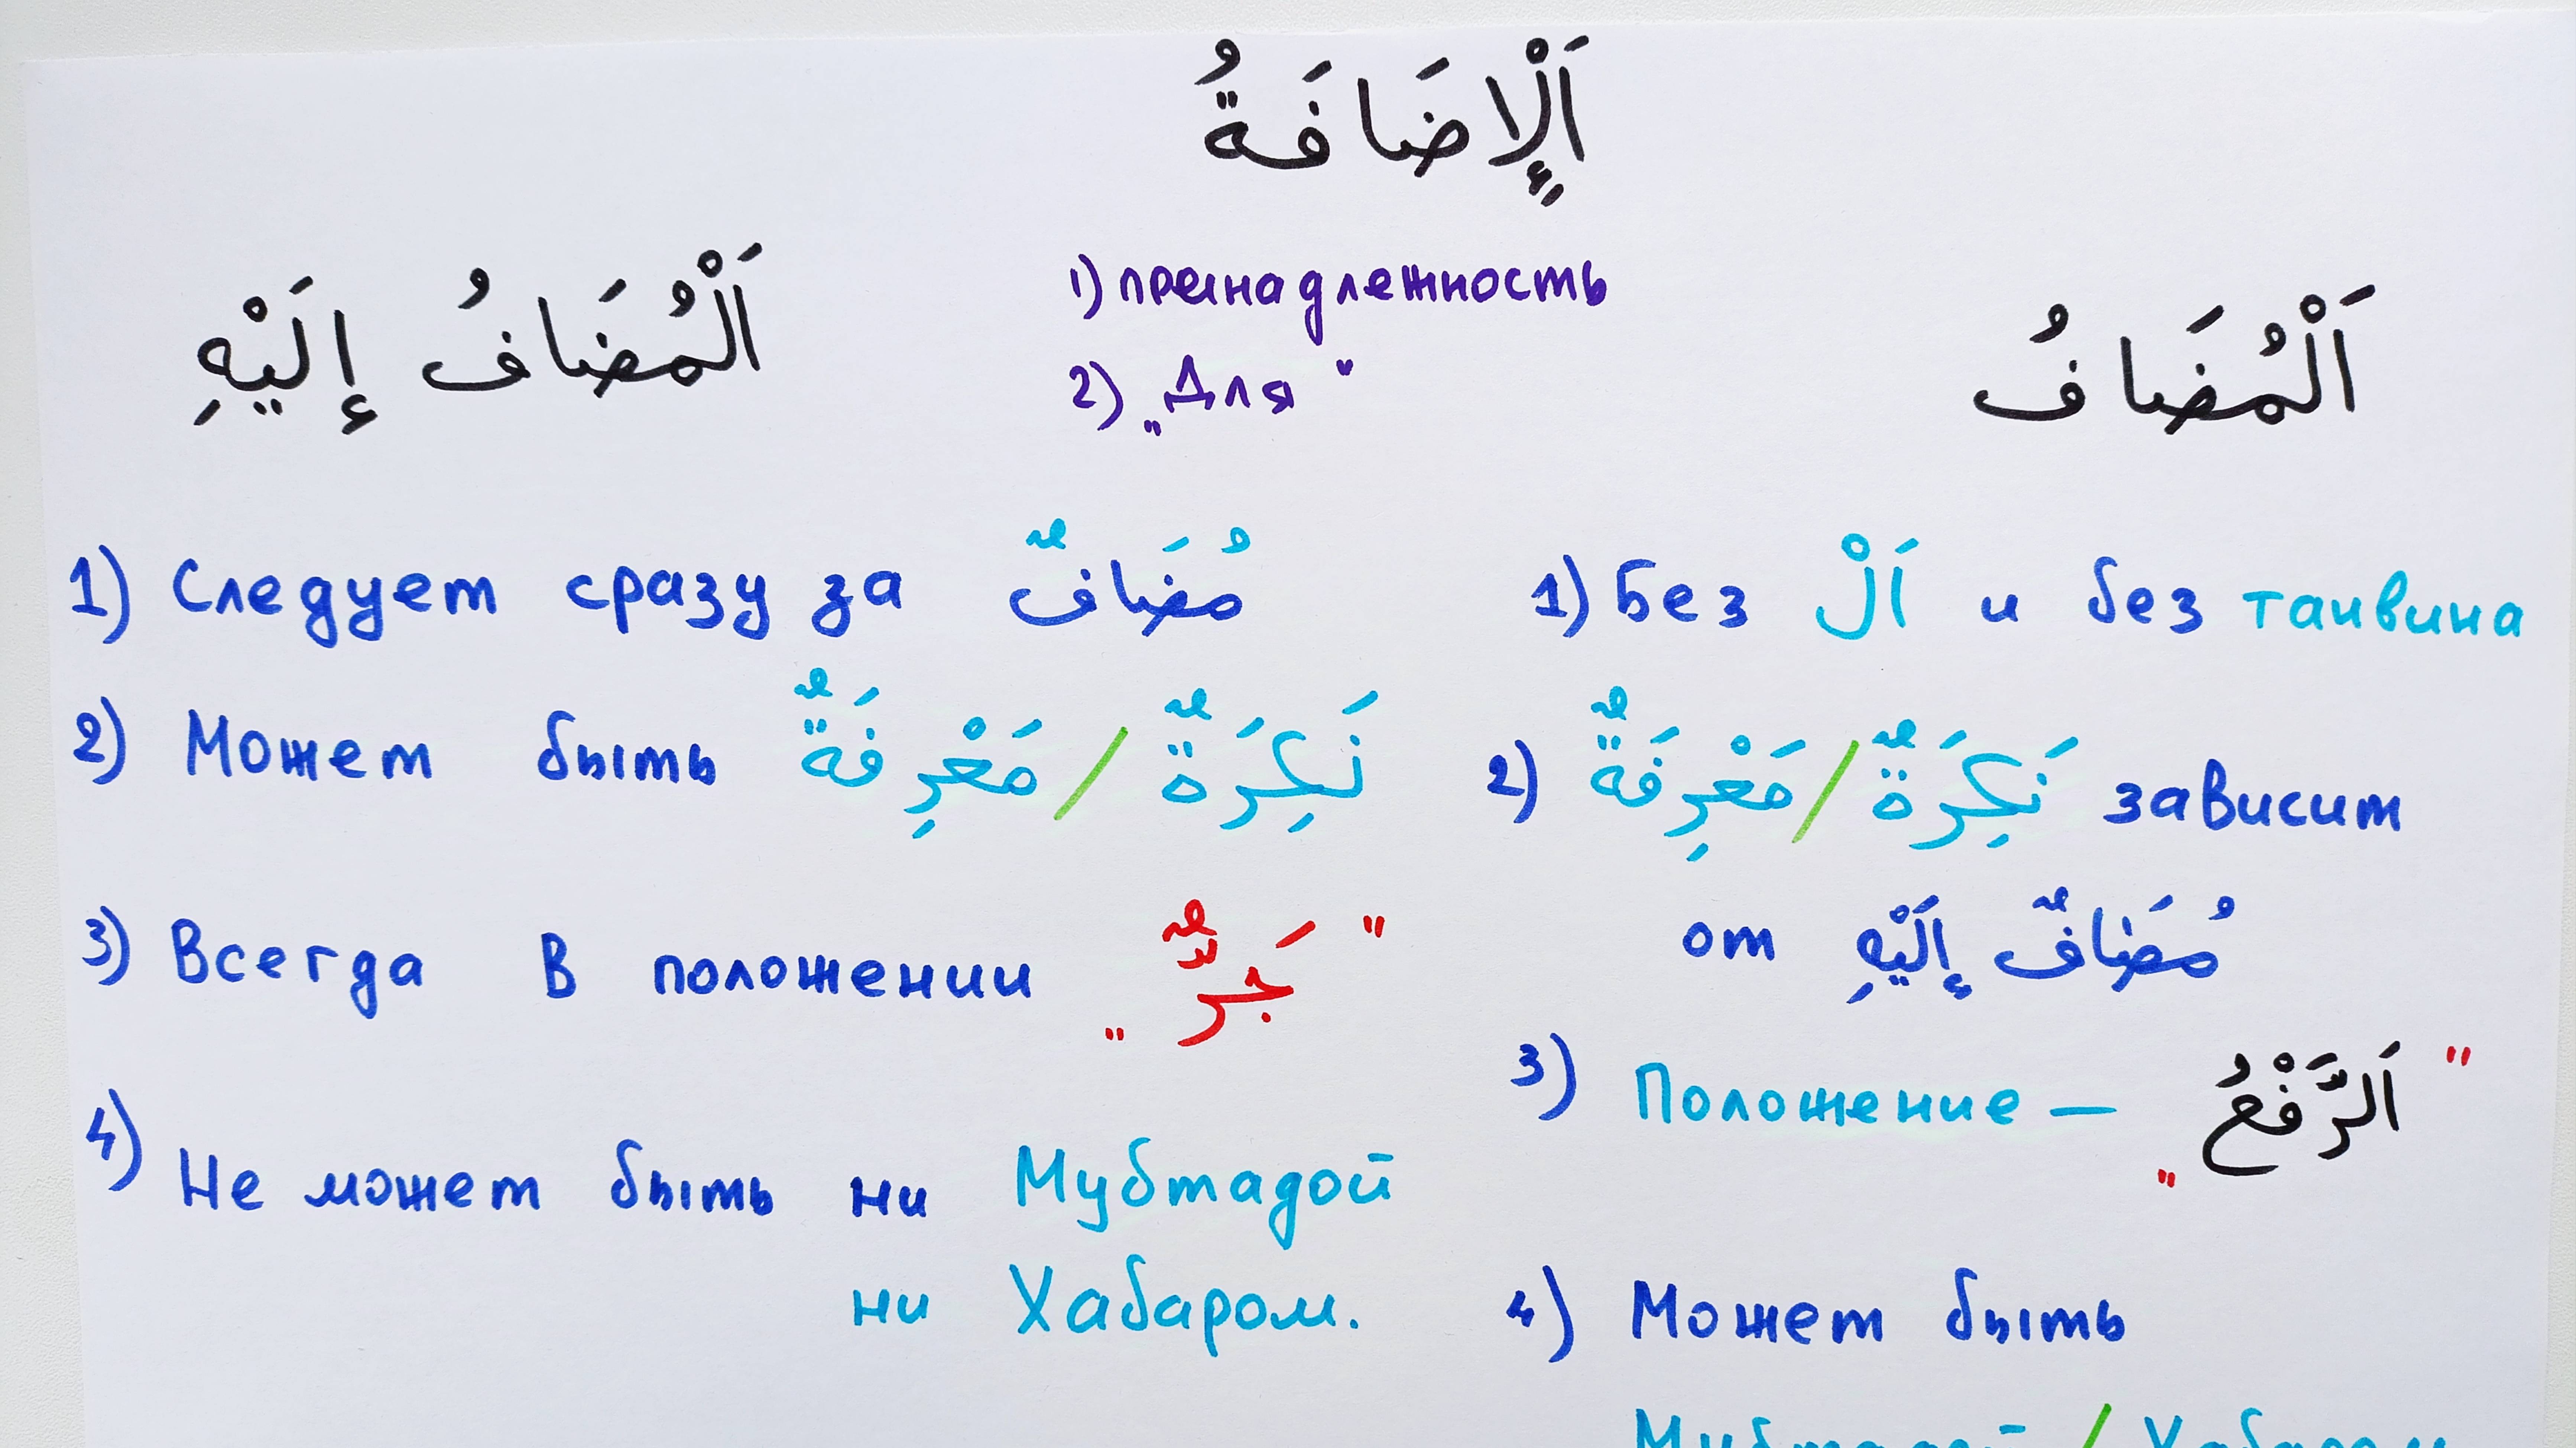 اَلْإِضَافَةُ
1) пренадлежность
2) „Для"
اَلْمُضَافُ
1) Без اَلْ и без танвина
2) نَكِرَةٌ / مَعْرِفَةٌ зависит
от مُضَافٌ إِلَيْهِ
3) Положение — „اَلرَّفْعُ"
4) Может быть
Мубтадой / Хабаром
اَلْمُضَافُ إِلَيْهِ
1) Следует сразу за مُضَافٌ
2) Может быть نَكِرَةٌ / مَعْرِفَةٌ
3) Всегда в положении „جَرٌّ"
4) Не может быть ни Мубтадой
ни Хабаром.